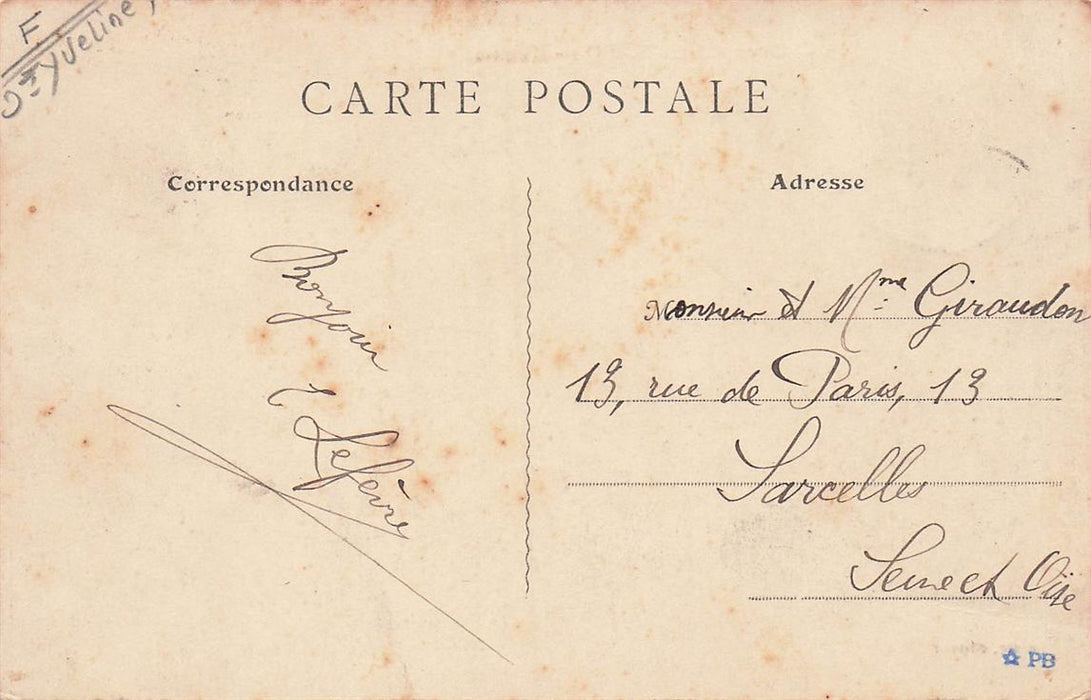 F
Yveline
CARTE POSTALE
Correspondance
Adresse
Bonjour
E Lefèvre
Monsieur et Mme Giraudon
13, rue de Paris, 13
Sarcelles
Seine et Oise
PB